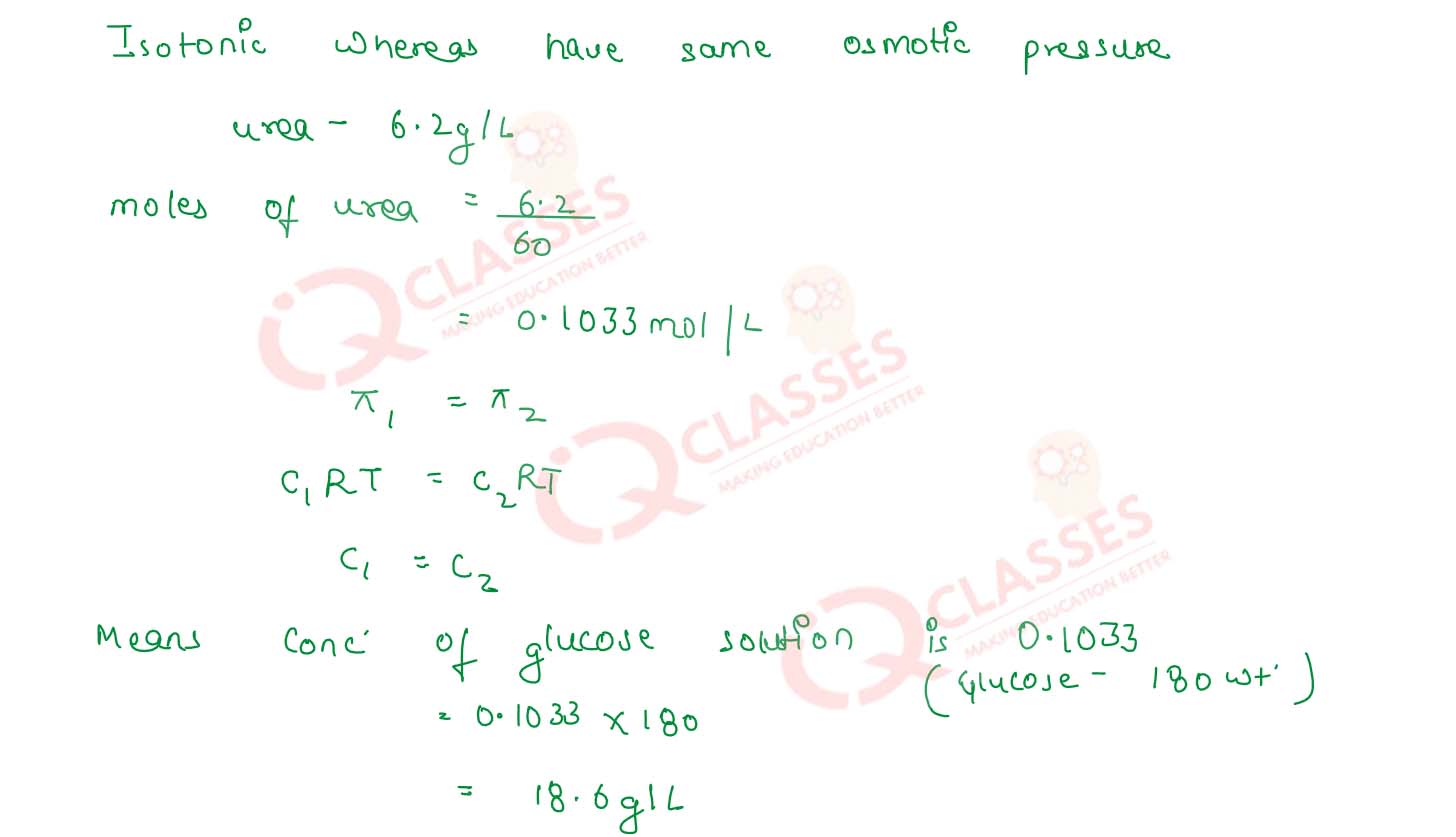 Isotonic whereas have same osmotic pressure
urea - 6.2g/L
moles of urea = 6.2
60
= 0.1033 mol/L
π1 = π2
C1RT = C2RT
C1 = C2
Means Conc of glucose solution is 0.1033
(Glucose - 180 wt.)
= 0.1033 x 180
= 18.6 g/L
iQ CLASSES
MAKING EDUCATION BETTER
iQ CLASSES
MAKING EDUCATION BETTER
iQ CLASSES
MAKING EDUCATION BETTER